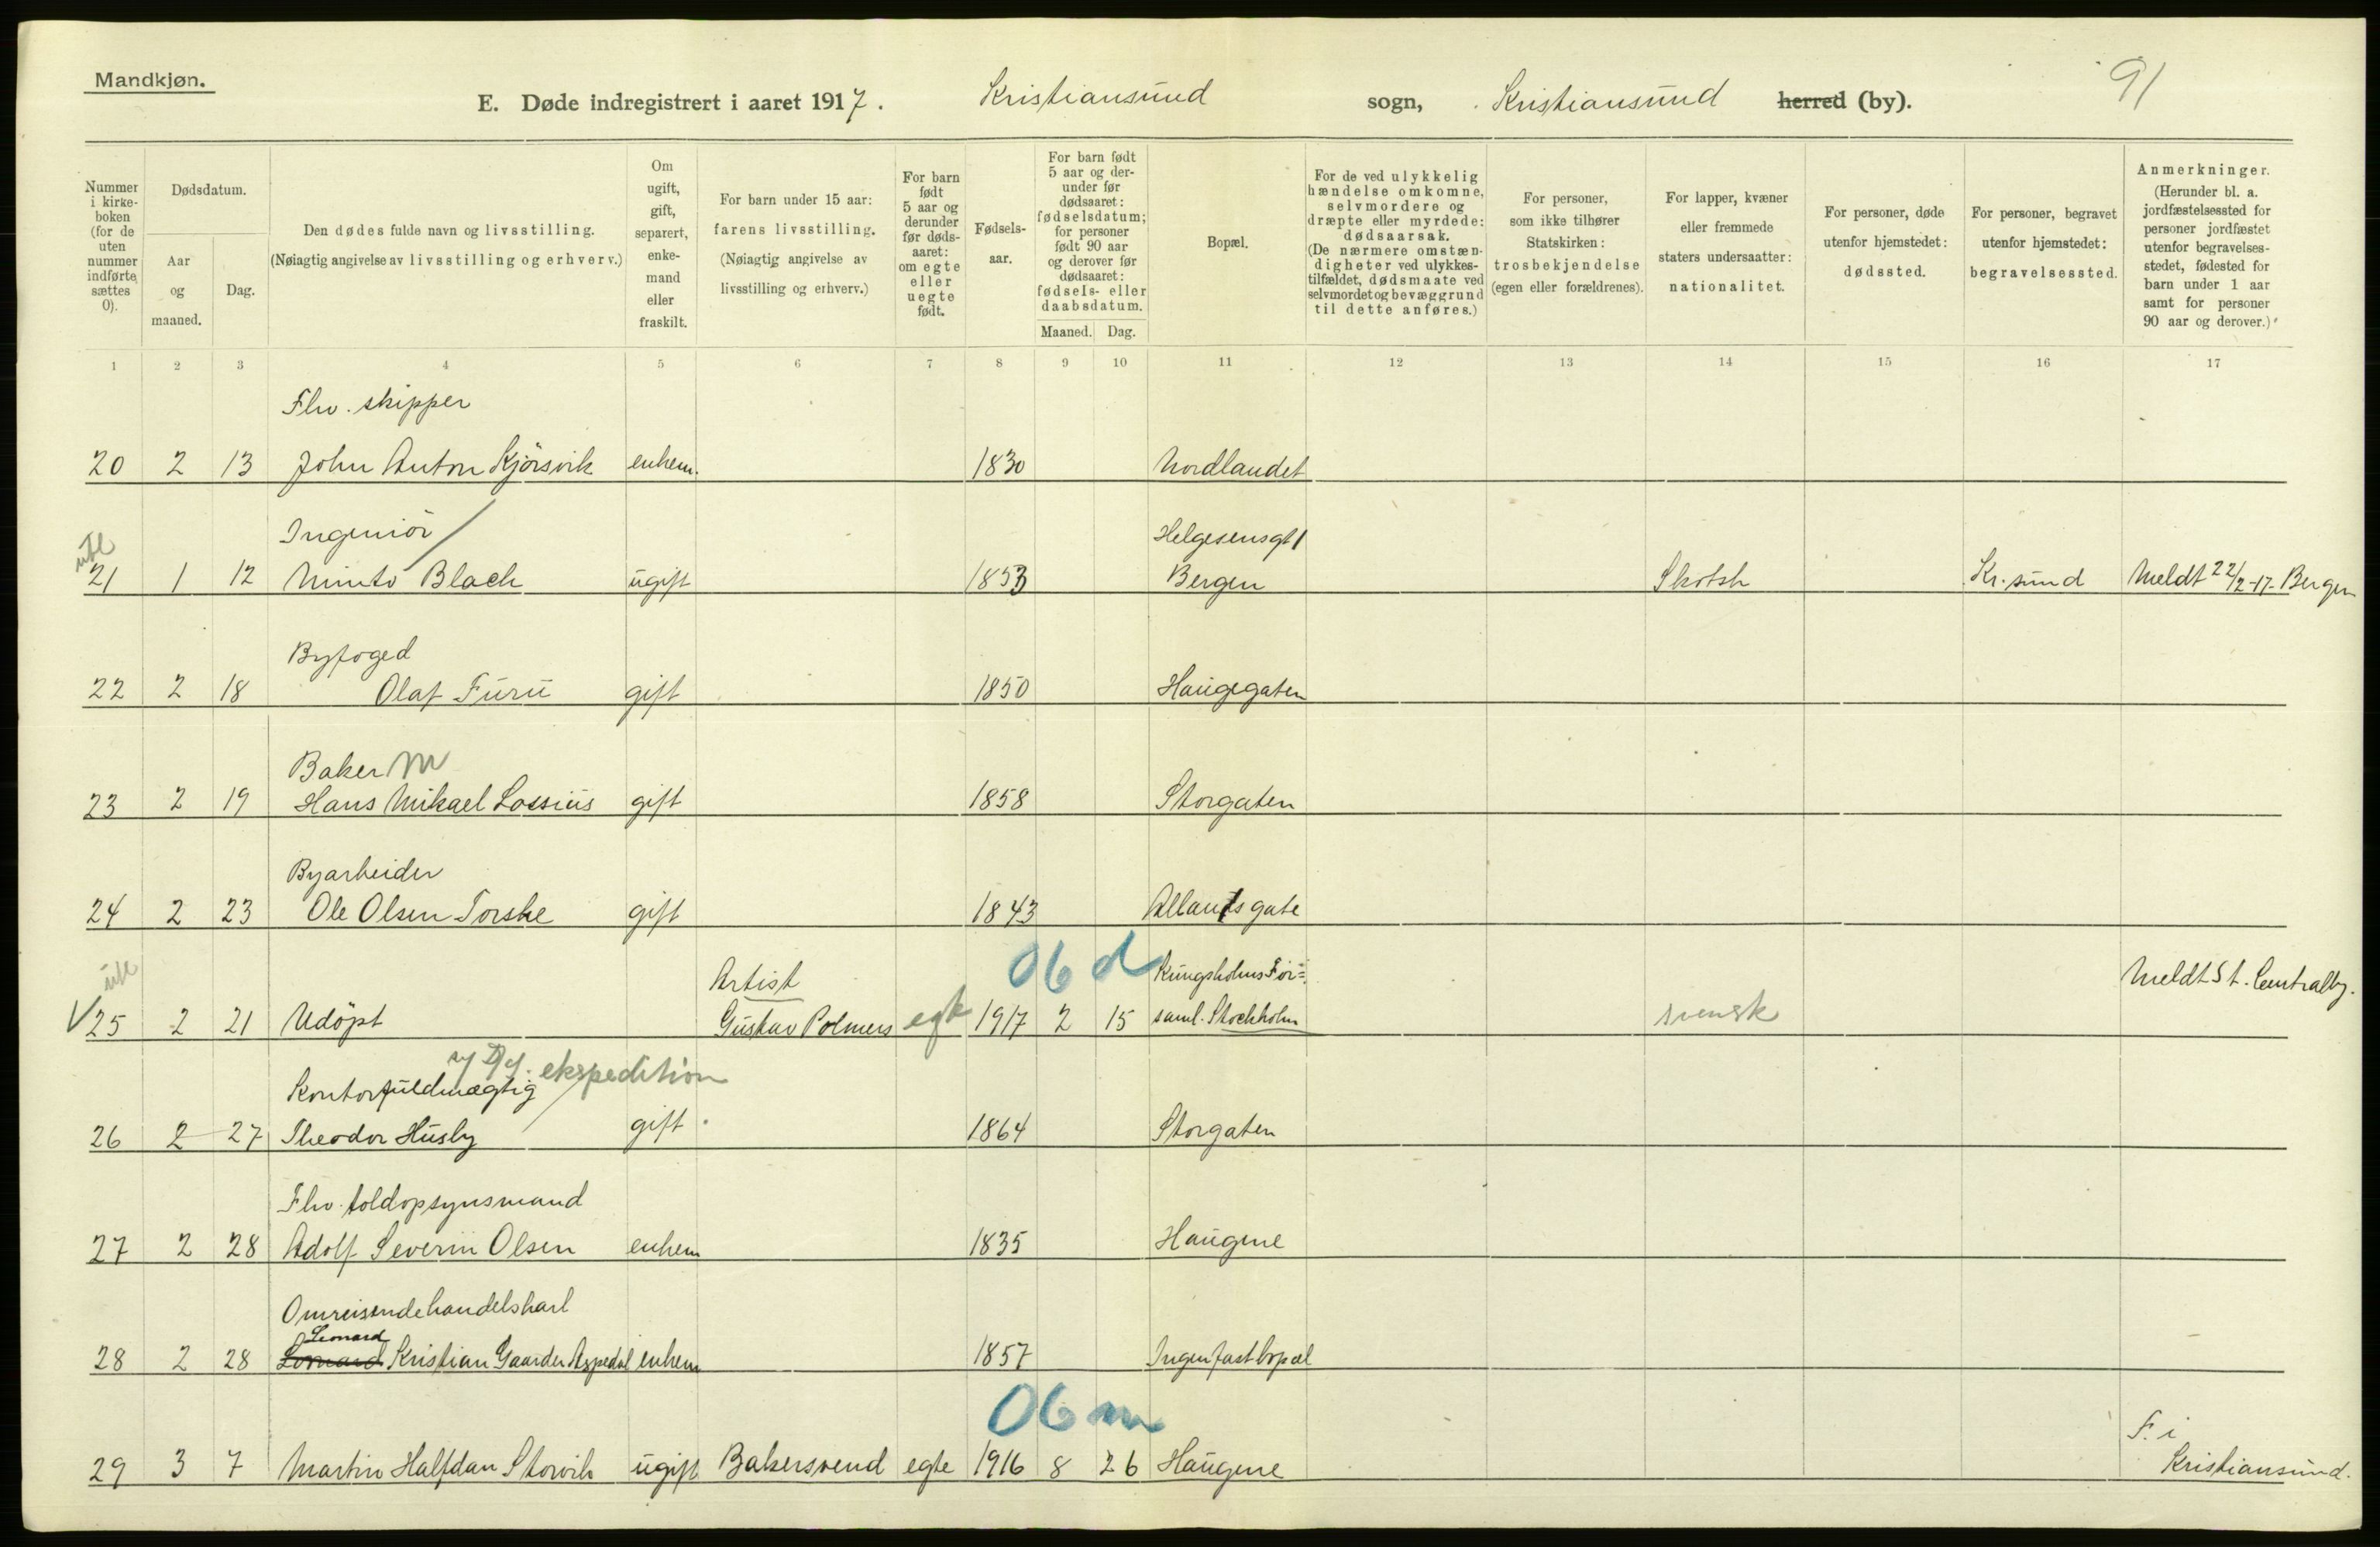 Mandkjøn.
E. Døde indregistrert i aaret 1917. Kristiansund sogn, Kristiansund herred (by). 91
Nummer i kirke-boken (for de uten nummer indførte sættes 0).
Dødsdatum.
Aar og maaned.
Dag.
Den dødes fulde navn og livsstilling.
(Nøiagtig angivelse av livsstilling og erhverv.)
Om ugift, gift, separert, enke-mand eller fraskilt.
For barn under 15 aar:
farens livsstilling.
(Nøiagtig angivelse av livsstilling og erhverv.)
For barn født 5 aar og derunder før døds-aaret: om egte eller uegte født.
Fødsels-aar.
For barn født 5 aar og der-under før dødsaaret: fødselsdatum; for personer født 90 aar og derover før dødsaaret: fødsels- eller daabsdatum.
Maaned. Dag.
Bopæl.
For de ved ulykkelig hændelse omkomne, selvmordere og dræpte eller myrdede: dødsaarsak.
(De nærmere omstæn-digheter ved ulykkes-tilfældet, dødsmaate ved selvmordet og bevæggrund til dette anføres.)
For personer, som ikke tilhører Statskirken: trosbekjendelse (egen eller forældrenes).
For lapper, kvæner eller fremmede staters undersaatter: nationalitet.
For personer, døde utenfor hjemstedet: dødssted.
For personer, begravet utenfor hjemstedet: begravelsessted.
Anmerkninger.
(Herunder bl. a. jordfæstelsessted for personer jordfæstet utenfor begravelses-stedet, fødested for barn under 1 aar samt for personer 90 aar og derover.)
1 2 3 4 5 6 7 8 9 10 11 12 13 14 15 16 17
Flv. skipper
20 2 13 John Anton Kjörsvik enkem. 1830 Nordlandet
utl Ingeniör Helgesensgt 1
21 1 12 Minto Black ugift 1853 Bergen Skotsk Kr.sund Meldt 22/2-17- Bergen
Byfoged
22 2 18 Olaf Furu gift 1850 Haugegaten
Baker M
23 2 19 Hans Mikael Lossius gift 1858 Storgaten
Byarbeider
24 2 23 Ole Olsen Torske gift 1843 Allantsgate
06 d
utl Artist Kungsholms För= Meldt St. Centralby.
V 25 2 21 Udöpt Gustav Polmers egte 1917 2 15 saml. Stockholm svensk
ekspedition
Kontorfuldmægtig
26 2 27 Theodor Husby gift 1864 Storgaten
Flv. toldopsynsmand
27 2 28 Adolf Severin Olsen enkem 1835 Haugene
Omreisende handelskarl
Leonard
28 2 28 Kristian Gaarder Aspedal enkem 1857 Ingen fast bopæl
06 m
F. i
29 3 7 Martin Halfdan Storvik ugift Bakersvend egte 1916 8 26 Haugene Kristiansund.